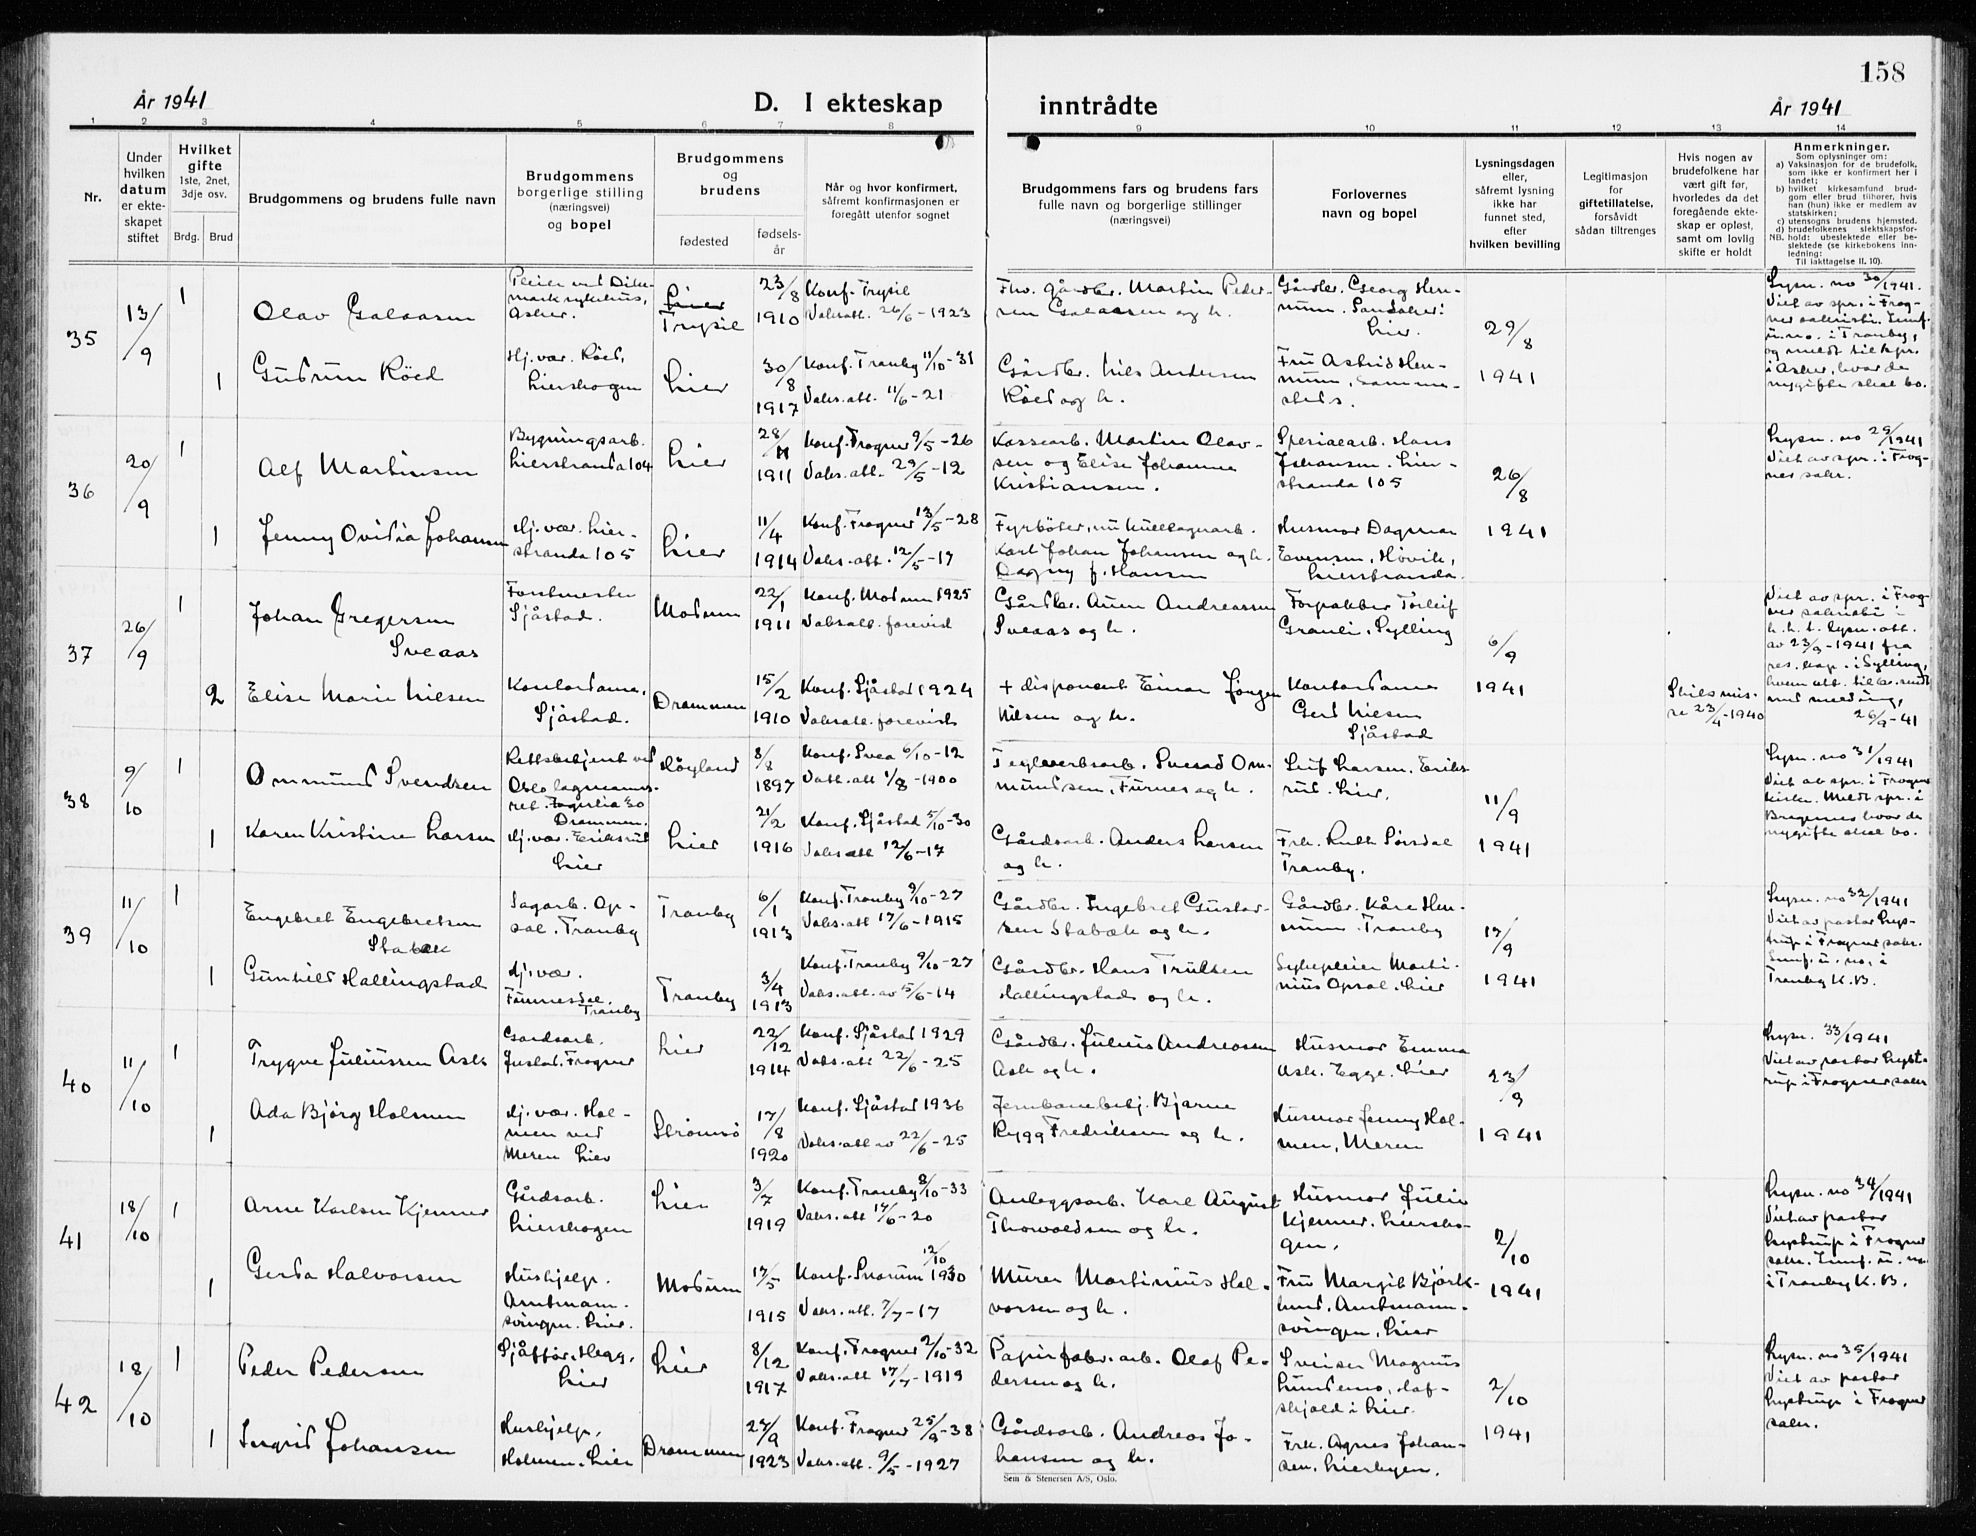 158
År 1941
D. I ekteskap inntrådte
År 1941
1 2 3 4 5 6 7 8 9 10 11 12 13 14
Nr.
Under hvilken datum er ekteskapet stiftet
Hvilket gifte
1ste, 2net, 3dje osv.
Brdg. Brud
Brudgommens og brudens fulle navn
Brudgommens borgerlige stilling (næringsvei) og bopel
Brudgommens og brudens
fødested
fødselsår
Når og hvor konfirmert, såfremt konfirmasjonen er foregått utenfor sognet
Brudgommens fars og brudens fars fulle navn og borgerlige stillinger (næringsvei)
Forlovernes navn og bopel
Lysningsdagen eller, såfremt lysning ikke har funnet sted, efter hvilken bevilling
Legitimasjon for giftetillatelse, forsåvidt sådan tiltrenges
Hvis nogen av brudefolkene har vært gift før, hvorledes da det foregående ekteskap er opløst, samt om lovlig skifte er holdt
Anmerkninger.
Som oplysninger om:
a) Vaksinasjon for de brudefolk, som ikke er konfirmert her i landet;
b) hvilket kirkesamfund brudgom eller brud tilhører, hvis han (hun) ikke er medlem av statskirken;
c) utensogns brudens hjemsted.
d) brudefolkenes slektskapsforhold: ubeslektede eller beslektede (se kirkebokens innledning:
NB. Til iakttagelse II, 10).
35
13/9
1
Olav Galaasen
Pleier ved Dikemark sykehus, Asker.
Lier
Trysil
23/8 1910
Konf. Trysil
Vaksatt. 26/6-1923
Fhv. gårdbr. Martin Pedersen Galaasen og h.
Gårdbr. Georg Hennum. Sandaker i Lier.
29/8 1941
Lysn. no 30/1941.
Viet av spr. i Frogner sakristi. Innf. u. no. i Tranby, og meldt til spr. i Asker, hvor de nygifte skal bo.
1
Gudrun Röed
Hj. vær. Röed, Lierskogen
Lier
30/8 1917
Konf. Tranby 11/10-31
Vaks.att. 11/6-21
Gårdbr. Nils Andersen Röed og h.
Fru Astrid Hennum, sammesteds.
36
20/9
1
Alf Martinsen
Bygningsarb. Lierstranda 104
Lier
28/11 1911
Konf. Frogner 9/5-26
Vaks.att. 29/5-12
Kassearb. Martin Olavsen og Elise Johanne Kristiansen.
Spesialarb. Hans Johansen. Lierstranda 105
26/8 1941
Lysn. no 29/1941
Viet av spr. i Frogner sakr.
1
Jenny Ovidia Johansen
Hj. vær. Lierstranda 105
Lier
11/4 1914
Konf. Frogner 13/5-28
Vaks.att. 12/5-17
Fyrböter, nu kullagerarb. Karl Johan Johansen og h. Dagny f. Hansen
Husmor Dagmar Evensen, Hövik, Lierstranda.
37
26/9
1
Johan Gregersen Sveaas
Forstmester Sjåstad.
Modum
22/1 1911
Konf. Modum 1925
Vaksatt. forevist
Gårdbr. Aren Andreassen Sveaas og h.
Forpakter Torleif Granli, Sylling
6/9 1941
Viet av spr. i Frogner sakristi i h. h. t. lysn. att. av 23/9-1941 fra res. kap. i Sylling, hvem att. tilb.sendt med melding, 26/9-41
2
Elise Marie Nilsen
Kontordame, Sjåstad.
Drammen
15/2 1910
Konf. Sjåstad 1924
Vaksatt. forevist
+ disponent Einar Jørgen Nilsen og h.
Kontordame Gerd Nilsen Sjåstad
Skilsmisse 23/4-1940
38
9/10
1
Ommund Svendsen
Rettsbetjent ved Oslo lagmannsret. Fagerlia 30 Drammen.
Höyland
8/8 1897
Konf. Svea 6/10-12
Vatt. att 1/8-1900
Teglverksarb. Svend Ommundsen, Furnes og h.
Leif Larsen. Eriksrud. Lier.
11/9 1941
Lysn. no 31/1941
Viet av spr. i Frogner kirke. Meldt spr. i Bragernes hvor de nygifte skal bo.
1
Karen Kristine Larsen
Hj. vær. Eriksrud Lier
Lier
21/2 1916
Konf. Sjåstad 5/10-30
Vaks.att 12/6-17
Gårdsarb. Anders Larsen og h.
Frk. Ruth Sörsdal Tranby.
39
11/10
1
Engebret Engebretsen Stabæk
Sagarb. Opsal. Tranby
Tranby
6/1 1913
Konf. Tranby 9/10-27
Vaks. att 17/6-1915
Gårdbr. Ingebret Gustavsen Stabæk og h.
Gårdbr. Kåre Hennum. Tranby
17/9 1941
Lysn. no 32/1941
Viet av pastor Lystrup i Frogner sakr. Innf. u. no. i Tranby K.B.
1
Gunhild Hallingstad
Hj. vær. Tranby
Tranby
3/4 1913
Konf. Tranby 9/10-27
Vaks.att. av 15/6-14
Gårdbr. Hans Trulsen Hallingstad og h.
Sykepleier Martinius Opsal. Lier
40
11/10
1
Trygve Juliussen Ask
Gårdsarb. Justad. Frogner
Lier
22/12 1914
Konf. Sjåstad 1929
Vaks.att 22/6-25
Gårdbr. Julius Andreassen Ask og h.
Husmor Emma Ask. Egge. Lier
23/9 1941
Lysn. 33/1941
Viet av pastor Lystrup i Frogner sakr
1
Ada Björg Holmen
Hj. vær. Holmen ved Meren Lier
Strömsö
17/8 1920
Konf. Sjåstad 1936
Vaks.att av 22/6-25
Jernbanebetj. Bjarne Rygg Fredriksen og h.
Husmor Jenny Holmen, Meren
41
18/10
1
Arne Karlsen Kjenner
Gårdsarb. Lierskogen
Lier
3/7 1919
Konf. Tranby 8/10-33
Vaks.att 17/6-20
Anleggsarb. Karl August Thorvaldsen og h.
Husmor Julie Kjenner. Lierskogen.
2/10 1941
Lysn. no 34/1941
Viet av pastor Lystrup i Frogner sakr. Innf. u. no i Tranby K.B.
1
Gerda Halvorsen
Hushjelp. Amtmannsvingen. Lier.
Modum
17/5 1915
Konf. Snarum 12/10 1930
Vaks.att. 7/7-17
Murer Martinius Halvorsen og h.
Fru Margit Björklund. Amtmannsvingen, Lier
42
18/10
1
Peder Pedersen
Sjåffør. Hegg, Lier
Lier
8/12 1917
Konf. Frogner 2/10-32
Vaks.att 17/7-1919
Papirfabr.arb. Olaf Pedersen og h.
Sveiser Magnus Lundemo, Hafskjold i Lier.
2/10 1941
Lysn. no 35/1941
Viet av pastor Lystrup i Frogner sakr.
1
Ingrid Johansen
Hushjelp, Holmen. Lier
Drammen
27/9 1923
Konf. Frogner 25/9-38
Vaks.att. 9/5-1927
Gårdsarb. Andreas Johansen og h.
Frk. Agnes Johansen. Lierbyen.
Sem & Stenersen A/S, Oslo.